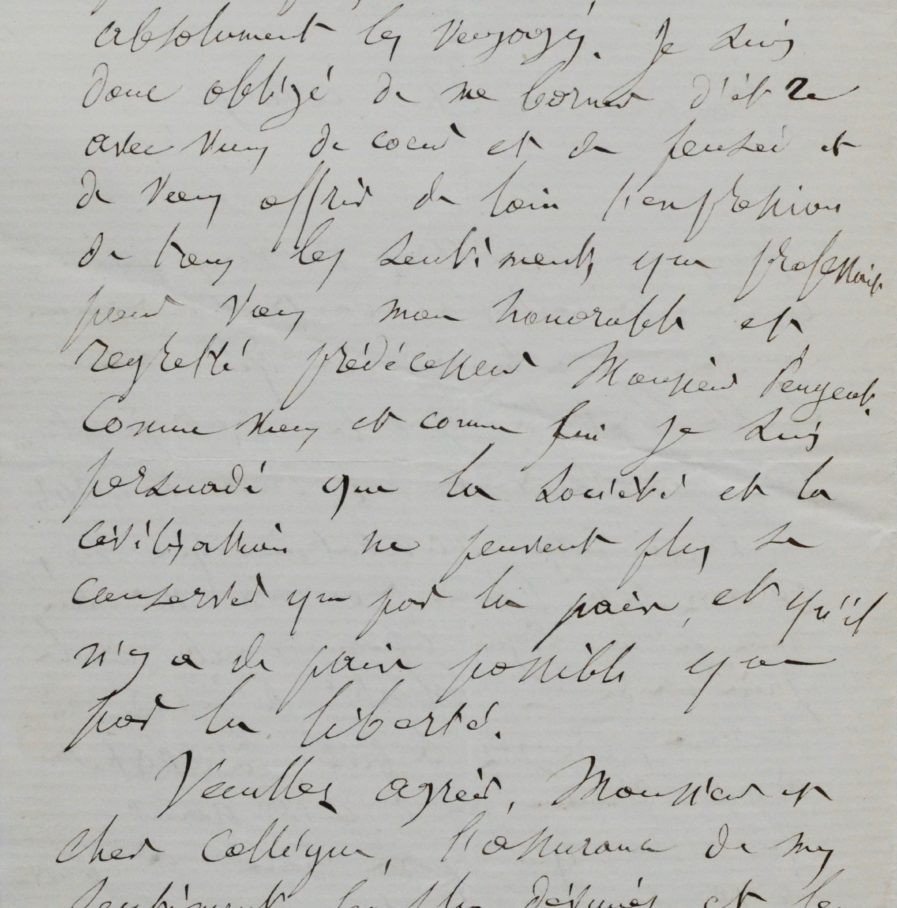 absolument les voyages. Je suis
donc obligé de me borner d'être
avec vous de coeur et de pensée et
de vous offrir de loin l'expression
de tous les sentiments que professait
pour vous mon honorable et
regretté prédécesseur Monsieur
Comme vous et comme lui je suis
persuadé que la société et la
civilisation ne peuvent plus se
conserver que par la paix, et qu'il
n'y a de paix possible que
par la liberté.
Veuillez agréer, Monsieur et
cher Collègue, l'assurance de mes
sentiments les plus dévoués et le